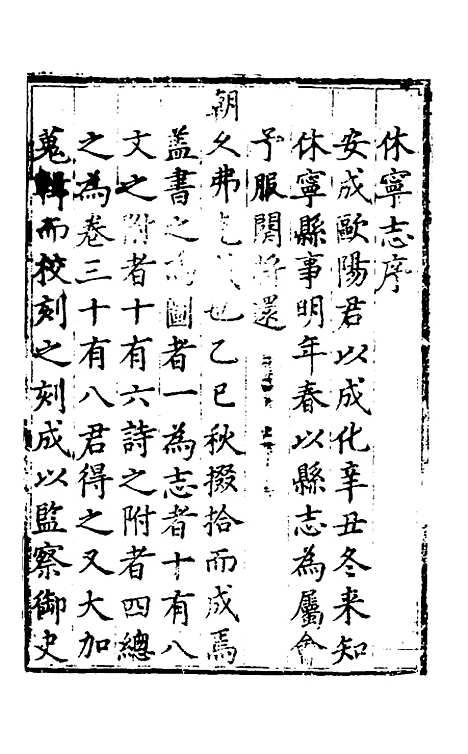 休寧志序
安成歐陽君以成化辛丑冬来知
休寧縣事明年春以縣志為屬會
予服闋将還
朝久弗克成也乙巳秋掇拾而成焉
盖書之為圖者一為志者十有八
文之附者十有六詩之附者四總
之為卷三十有八君得之又大加
蒐輯而校刻之刻成以監察御史